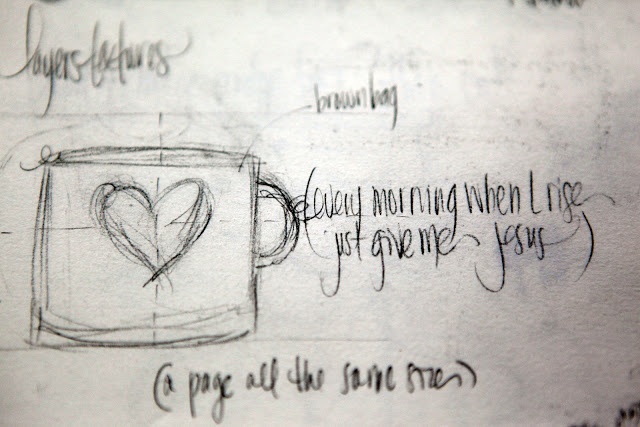 layers textures
brown bag
(every morning when I rise
just give me Jesus)
(a page all the same sizes)